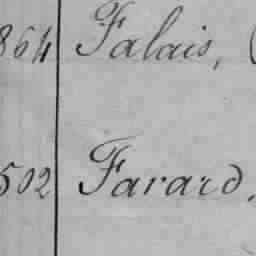 864 Falais, (
502 Farard,